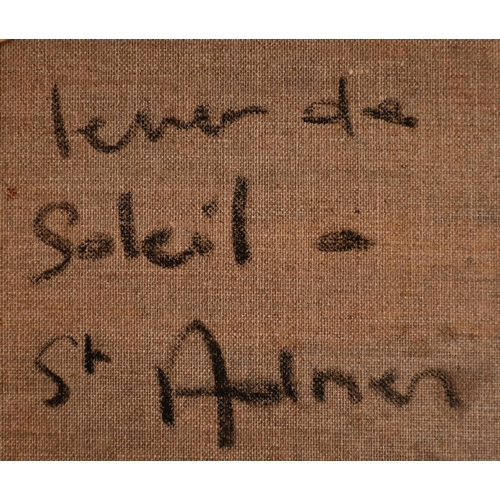 lever de
Soleil -
St